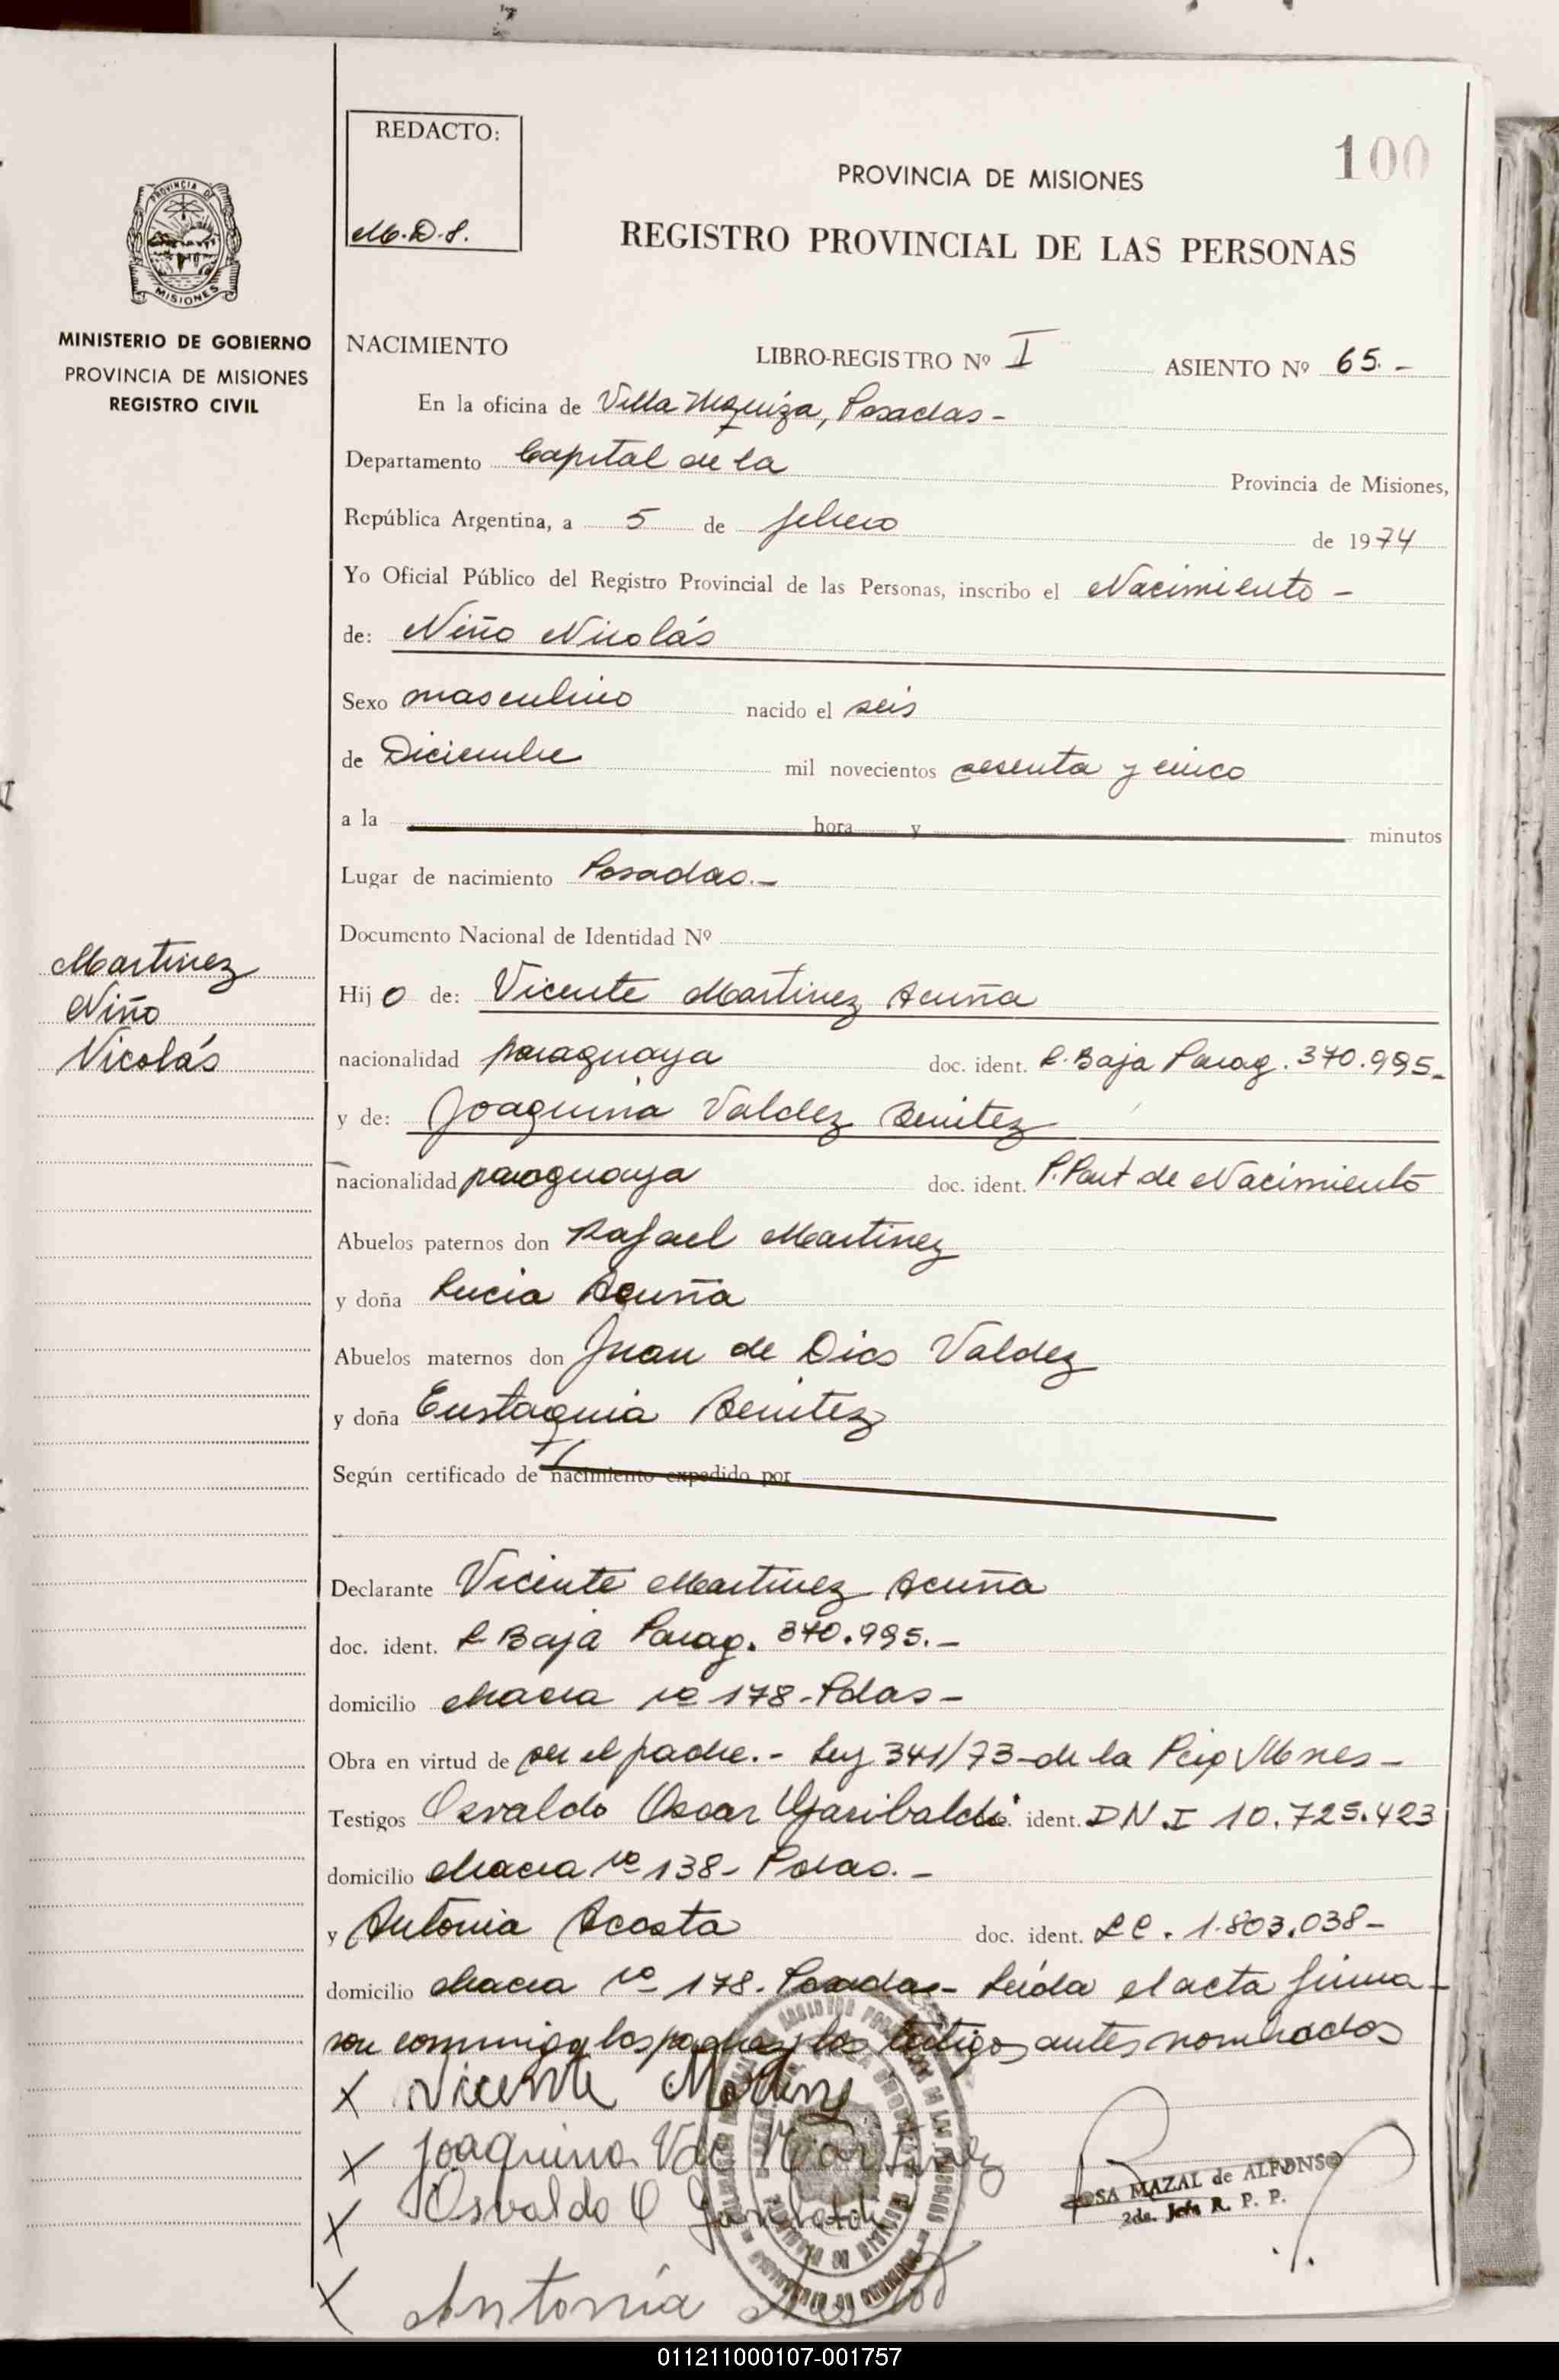 REDACTO:
M.D.S.
100
PROVINCIA DE MISIONES
REGISTRO PROVINCIAL DE LAS PERSONAS
PROVINCIA DE
MISIONES
MINISTERIO DE GOBIERNO
PROVINCIA DE MISIONES
REGISTRO CIVIL
NACIMIENTO LIBRO-REGISTRO Nº I ASIENTO Nº 65.-
En la oficina de Villa Urquiza, Posadas-
Departamento Capital de la Provincia de Misiones,
República Argentina, a 5 de febrero de 1974
Yo Oficial Público del Registro Provincial de las Personas, inscribo el Nacimiento -
de: Niño Nicolás
Sexo masculino nacido el seis
de Diciembre mil novecientos sesenta y cinco
a la hora y minutos
Lugar de nacimiento Posadas.-
Documento Nacional de Identidad Nº
Martinez
Niño
Nicolás
Hijo de: Vicente Martinez Acuña
nacionalidad paraguaya doc. ident. L. Baja Parag. 370.995-
y de: Joaquina Valdez Benitez
nacionalidad paraguaya doc. ident. Part de Nacimiento
Abuelos paternos don Rafael Martinez
y doña Lucia Acuña
Abuelos maternos don Juan de Dios Valdez
y doña Eustaquia Benitez
Según certificado de nacimiento expedido por
Declarante Vicente Martinez Acuña
doc. ident. L Baja Parag. 370.995.-
domicilio chacra nº 178-Pdas-
Obra en virtud de ser el padre.- Ley 341/73-de la Mnes-
Testigos Osvaldo Oscar Garibaldi ident. DN.I 10.725.423
domicilio chacra nº 138- Pdas.-
y Antonia Acosta doc. ident. LC. 1.803.038-
domicilio chacra nº 178. Posadas- Leída el acta firma-
ron conmigo los padres y los testigos antes nombrados
X Vicente Martinez
X Joaquina Val Martinez
X Osvaldo O Garibaldi
ROSA MAZAL de ALFONSO
2da. Jefa R. P. P.
X Antonia
011211000107-001757